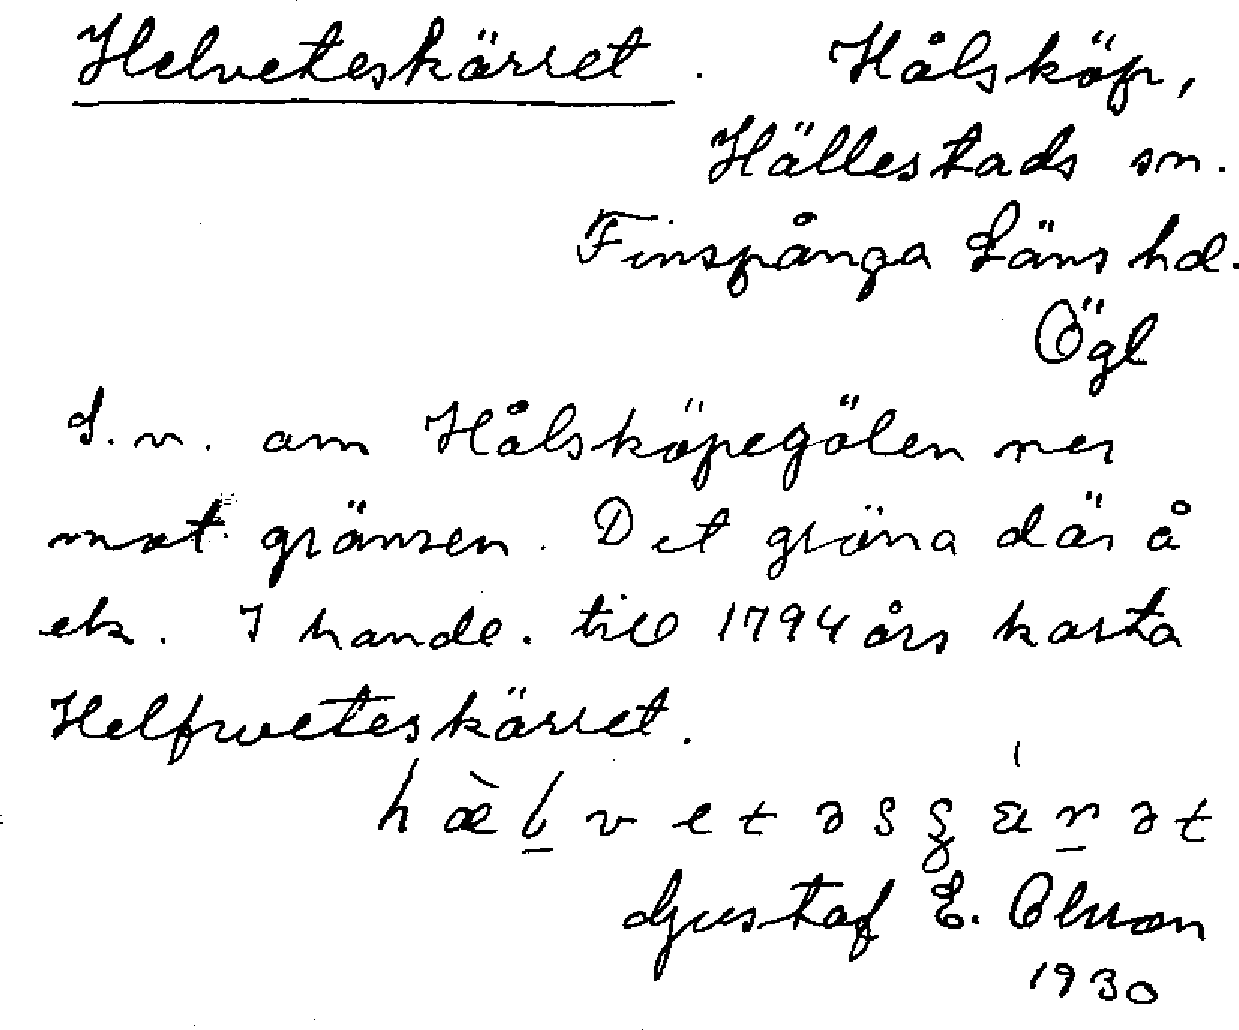 Helveteskärret. Hålsköp,
Hällestads sn.
Finspånga Läns hd.
Ögl
S.v. om Hålsköpegölen ner
mot gränsen. Det gröna där å
ek. I handl. till 1794 års karta
Helfweteskärret.
Gustaf E. Olsson
1930